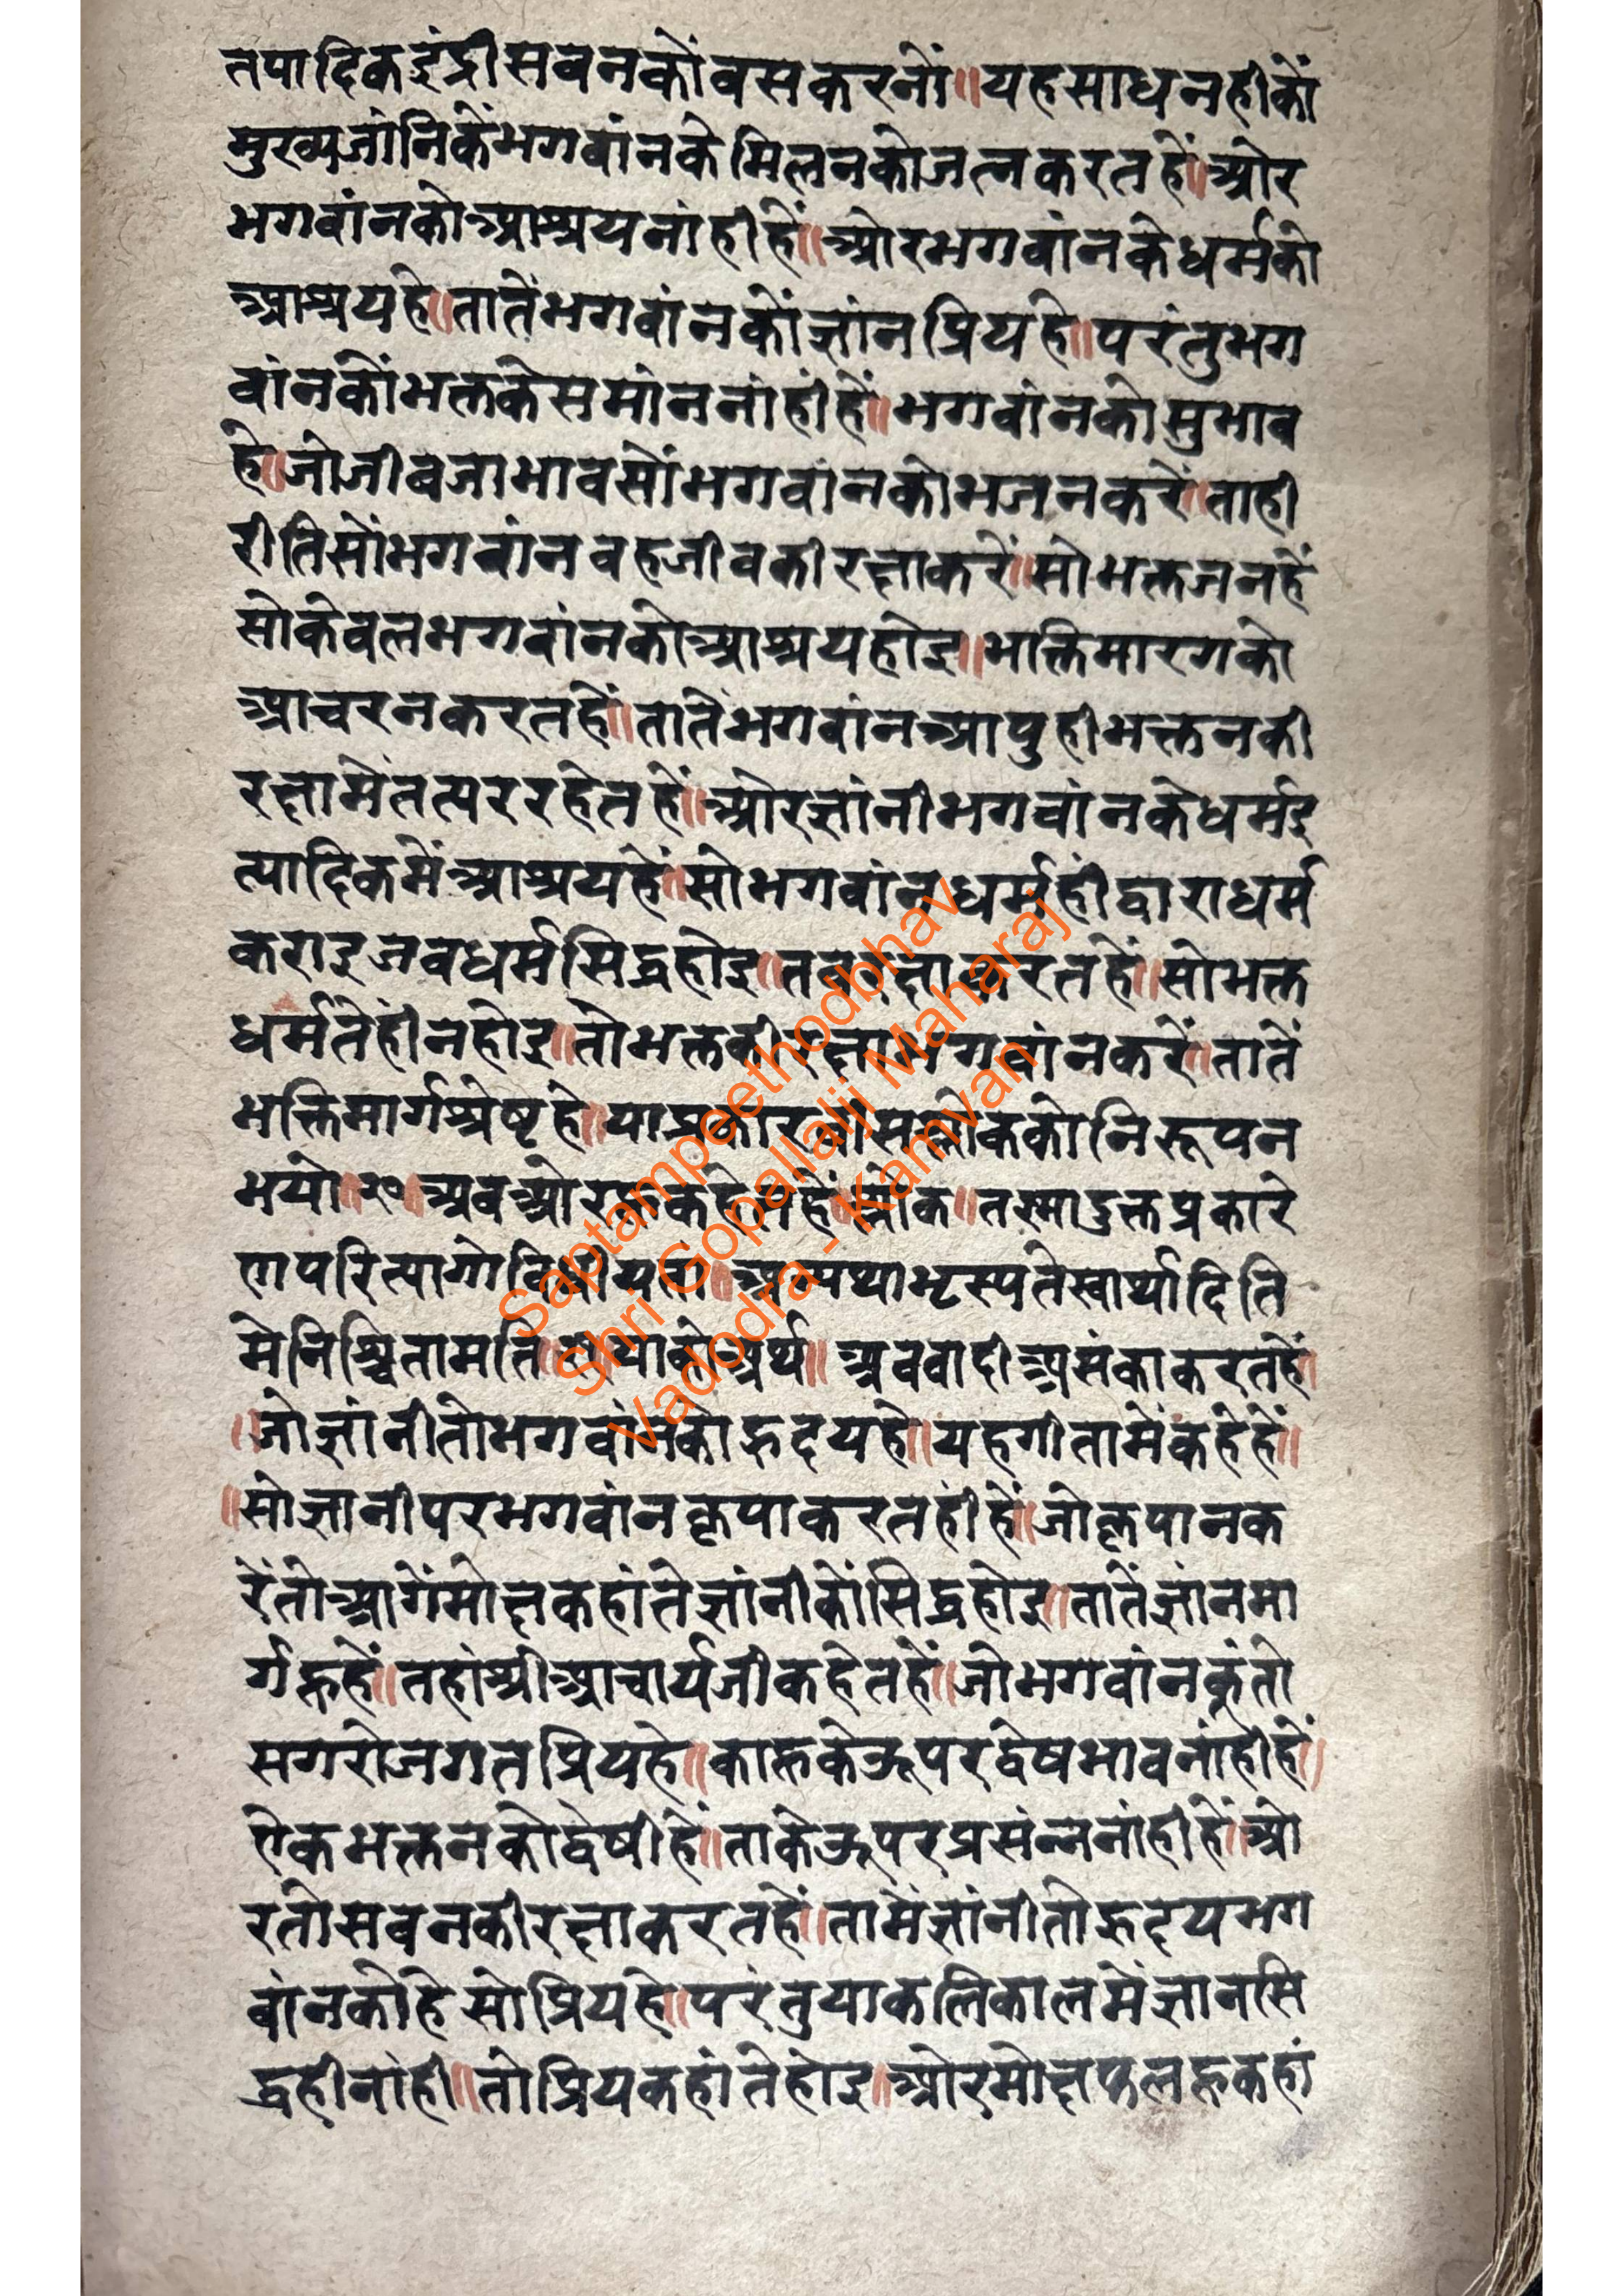 तपादिकइंद्रीसबनकोंबसकरनों॥यहसाधनहीकों
मुख्यजांनिकेंभगवांनकेमिलनकोजत्नकरतहें॥ओर
भगवांनकोआश्रयनांहीहें॥ओरभगवांनकेधर्मको
आश्रयहे॥तातेंभगवांनकोंज्ञांनप्रियहे॥परंतुभग
वांनकोंभक्तकेसमांननांहींहें॥भगवांनकोसुभाव
हे॥जोजीवजाभावसोंभगवांनकोभजनकरें॥ताही
रीतिसोंभगवांनवहजीवकीरक्षाकरें॥सोभक्तजनहें
सोकेवलभगवांनकोआश्रयहोइ॥भक्तिमारगको
आचरनकरतहें॥तातेंभगवांनआपुहीभक्तनकी
रक्षामेंतत्पररहेतहें॥ओरज्ञांनीभगवांनकेधर्मइ
त्यादिकमेंआश्रयहें॥सोभगवांनधर्महींद्वाराधर्म
कराइजबधर्मसिद्धहोइ॥तबरक्षाकरतहें॥सोभक्त
धर्मतेंहींनहोइ॥तोभक्तकीरक्षाभगवांनकरें॥तातें
भक्तिमार्गश्रेष्टहे॥याप्रकारवीसश्लोककोनिरूपन
भयो॥२०॥अबओरहूकहेतहें॥श्लोक॥तस्मादुक्तप्रकारे
णपरित्यागोविधीयतां॥अन्यथाभृस्यतेस्वार्थादिति
मेनिश्चितामति॥याकोअर्थ॥अबवादीआसंकाकरतहें॥
॥जोज्ञांनीतोभगवांनकोहृदयहे॥यहगीतामेंकहेहें॥
॥सोज्ञानीपरभगवांनकृपाकरतहींहें॥जोकृपानक
रेंतोआगेंमोक्षकहांतेज्ञांनीकोंसिद्धहोइ॥तातेंज्ञांनमा
र्गहूहें॥तहांश्रीआचार्यजीकहेतहें॥जोभगवांनकुंतो
सगरोजगतप्रियहे॥काहूकेऊपरद्वेषभावनांहीहें॥
ऐकभक्तनकोद्वेषीहें॥ताकेऊपरप्रसंन्ननांहीहें॥ओ
रतोसबनकीरक्षाकरतहें॥तामेंज्ञांनीतोहृदयभग
वांनकोहेसोप्रियहे॥परंतुयाकलिकालमेंज्ञानसि
द्धहीनांही॥तोप्रियकहांतेहोइ॥ओरमोक्षफलहूकहां